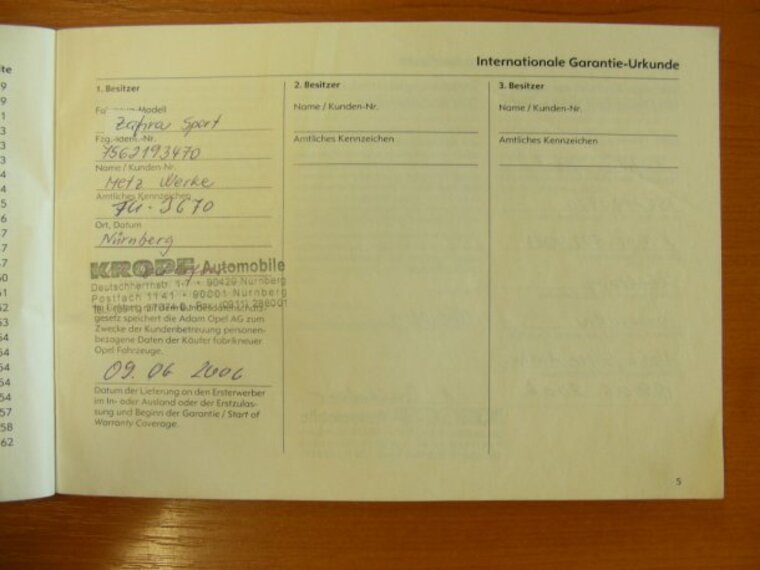 te
9
9
1
3
3
3
4
4
5
6
7
7
50
51
52
53
54
54
54
54
57
58
62
Internationale Garantie-Urkunde
1. Besitzer
Modell
Zafira Sport
Fzg.-Ident.-Nr.
7562193470
Name / Kunden-Nr.
Metz Werke
Amtliches Kennzeichen
Ort, Datum
Nürnberg
KROPF Automobile
Deutschherrnstr. 1-7 • 90429 Nürnberg
Postfach 1141 • 90001 Nürnberg
gesetz speichert die Adam Opel AG zum
Zwecke der Kundenbetreuung personen-
bezogene Daten der Käufer fabrikneuer
Opel Fahrzeuge.
09. 06 2006
Datum der Lieferung an den Ersterwerber
im In- oder Ausland oder der Erstzulas-
sung und Beginn der Garantie / Start of
Warranty Coverage.
2. Besitzer
Name / Kunden-Nr.
Amtliches Kennzeichen
3. Besitzer
Name / Kunden-Nr.
Amtliches Kennzeichen
5